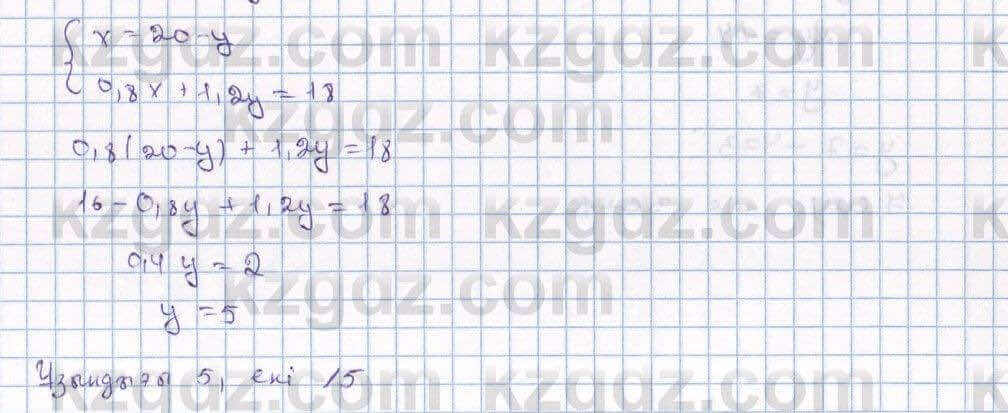 { x = 20 - y
0,8x + 1,2y = 18
0,8(20-y) + 1,2y = 18
16 - 0,8y + 1,2y = 18
0,4 y = 2
y = 5
Ұзындығы 5, ені 15
kzgdz.com kzgdz.com
kzgdz.com
kzgdz.com kzgdz.com
kzgdz.com
kzgdz.com kzgdz.com